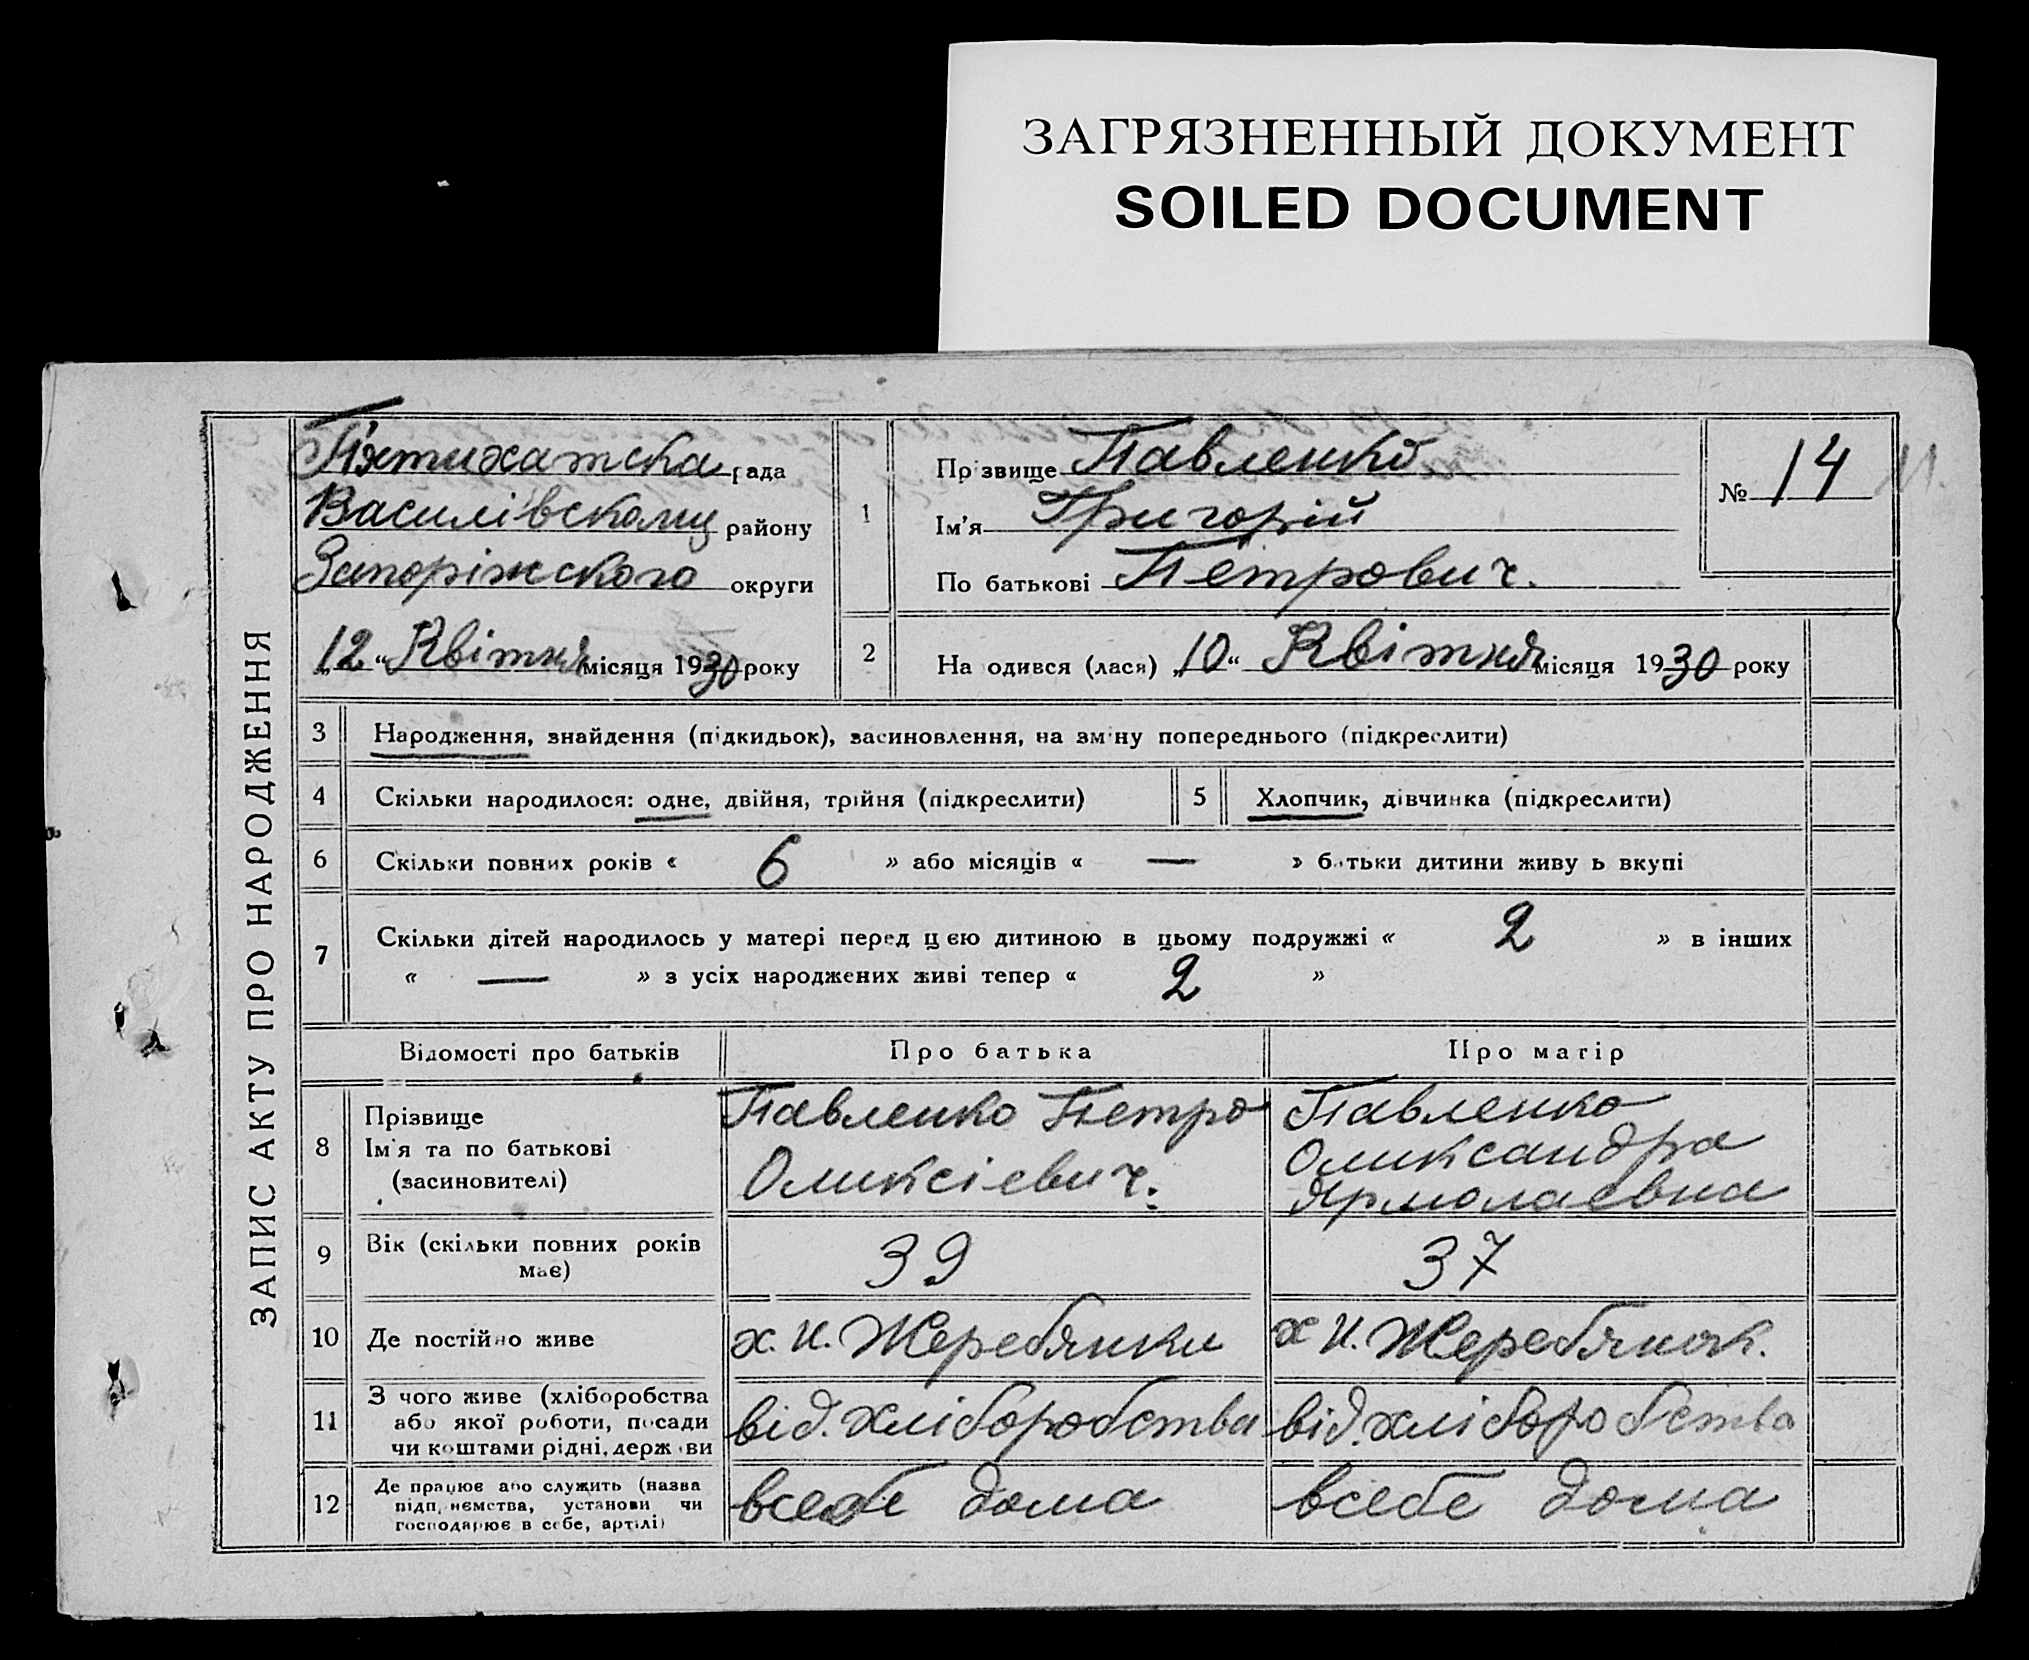 ЗАГРЯЗНЕННЫЙ ДОКУМЕНТ
SOILED DOCUMENT
ЗАПИС АКТУ ПРО НАРОДЖЕННЯ
Пятихатска рада
Василівському району
Запоріжского округи
„12“ Квітня місяця 1930 року
1
Прізвище Павленко
Ім'я Григорій
По батькові Петрович.
№ 14
2
На одився (лася) „10“ Квітня місяця 1930 року
3 Народження, знайдення (підкидьок), засиновлення, на зміну попереднього (підкреслити)
4 Скільки народилося: одне, двійня, трійня (підкреслити)
5 Хлопчик, дівчинка (підкреслити)
6 Скільки повних років « 6 » або місяців « — » батьки дитини живу ь вкупі
7 Скільки дітей народилось у матері перед цею дитиною в цьому подружжі « 2 » в інших
« — » з усіх народжених живі тепер « 2 »
Відомості про батьків Про батька Про матір
8 Прізвище
Ім'я та по батькові
(засиновителі)
Павленко Петро
Оликсієвич.
Павленко
Оликсандра
Ярмолаевна
9 Вік (скільки повних років
має)
39
37
10 Де постійно живе х. Н. Жеребянки х Н. Жеребянк.
11 З чого живе (хліборобства
або якої роботи, посади
чи коштами рідні, держави
від. хліборобства
від. хліборобства
12 Де працює або служить (назва
підприємства, установи чи
господарює в себе, артілі)
всебе дома
всебе дома